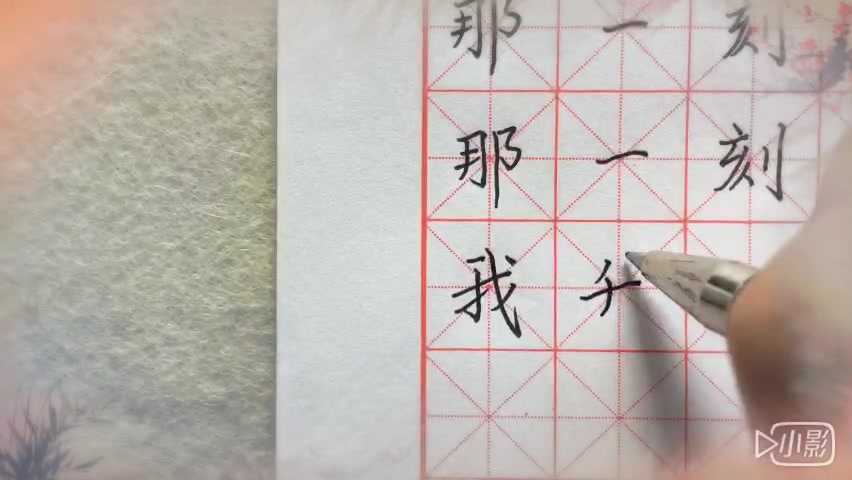 那一刻
那一刻
我
小影